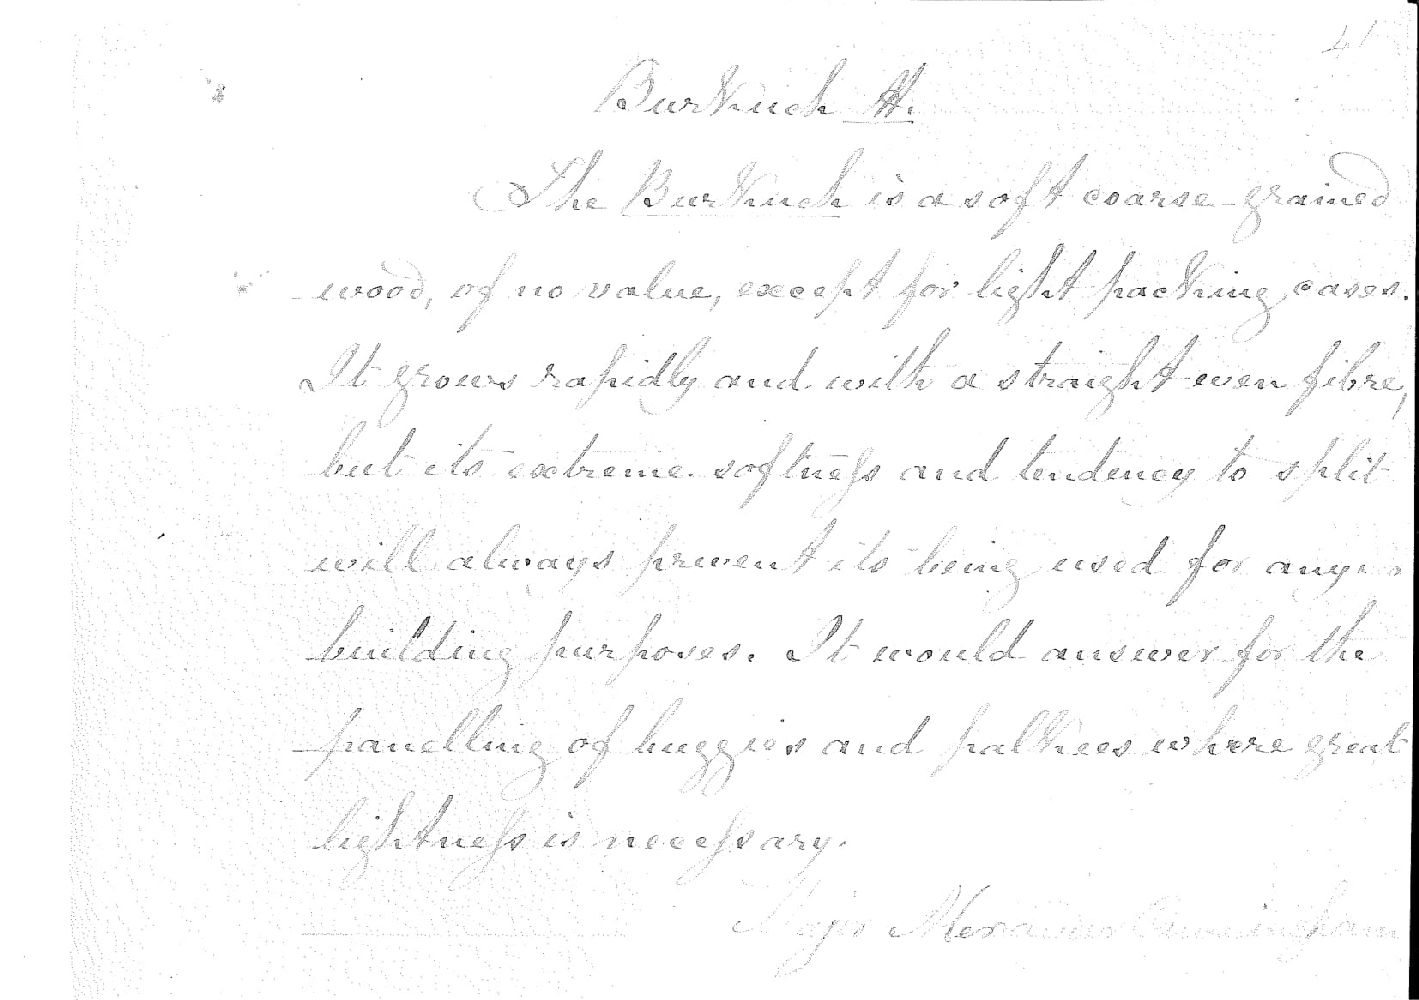 41
Burkuch H.
The Burkuch is a soft coarse grained
wood, of no value, except for light packing cases.
It grows rapidly and with a straight even fibre,
but its extreme softness and tendency to split
will always prevent its being used for any
building purposes. It would answer for the
panelling of buggies and palkees where great
lightness is necessary.
Major Alexander Cunningham